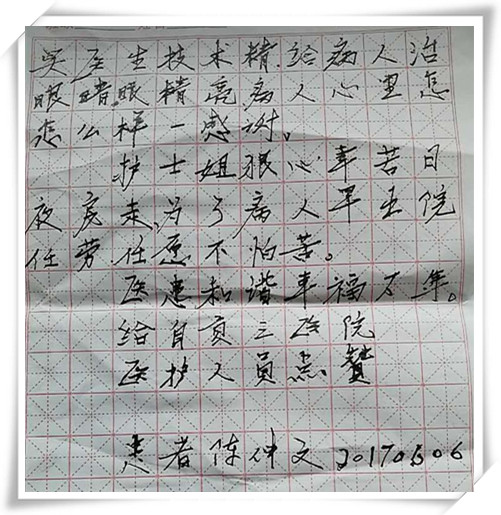 吴医生技术精给病人治
眼睛眼精亮病人心里怎
怎么样一感谢。
护士姐狠心辛苦日
夜房走为了病人早出院
任劳任愿不怕苦。
医患和谐幸福万年。
给自贡三医院
医护人员点赞
患者陈仲文20170606